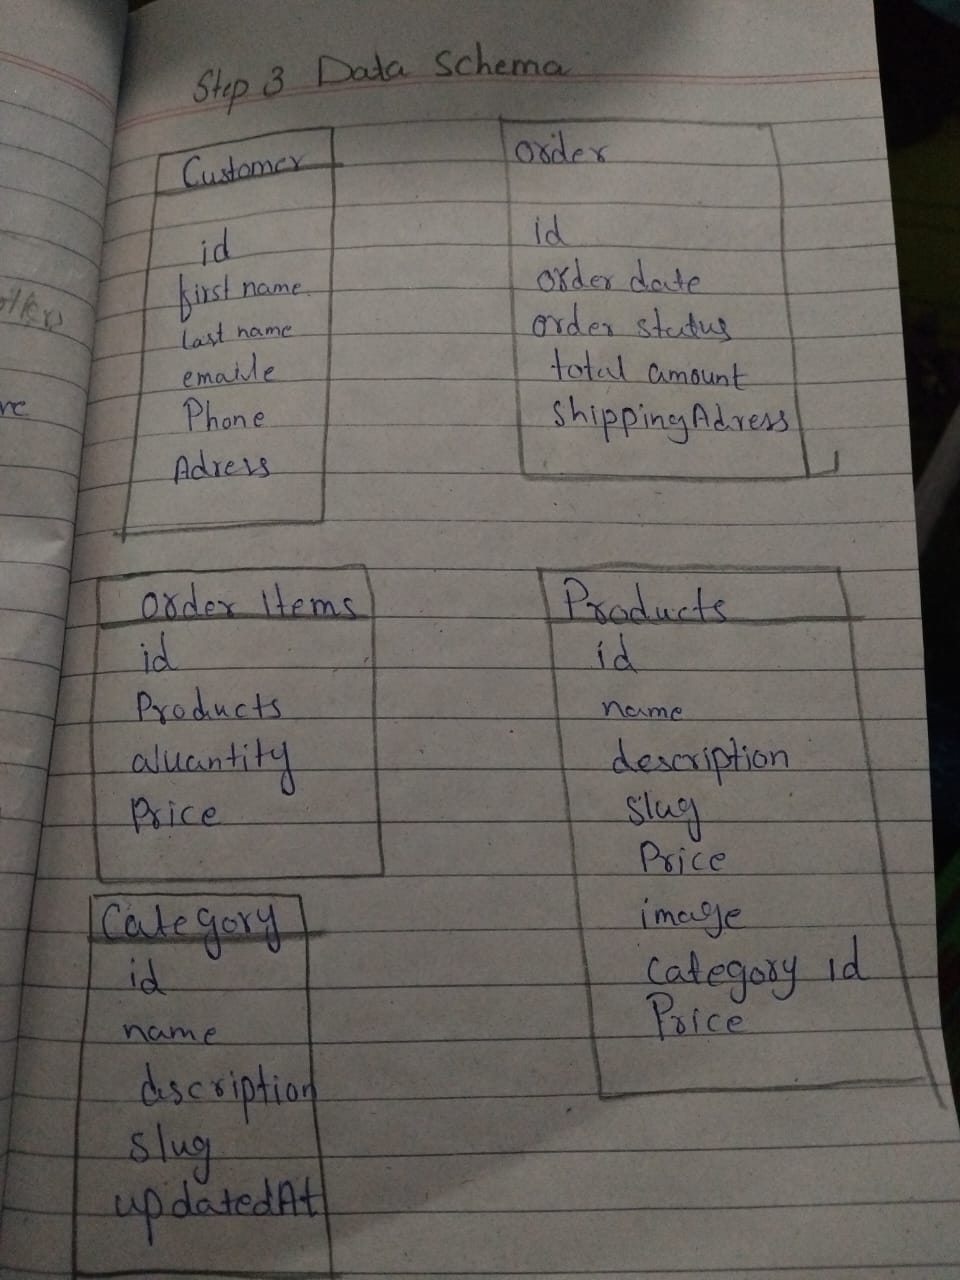 Step 3 Data Schema
Customer
id
first name
last name
emaile
Phone
Adress
order
id
order date
order status
total amount
shippingAdress
order items
id
Products
quantity
Price
Products
id
name
description
slug
Price
image
category id
Price
Category
id
name
description
slug
updatedAt